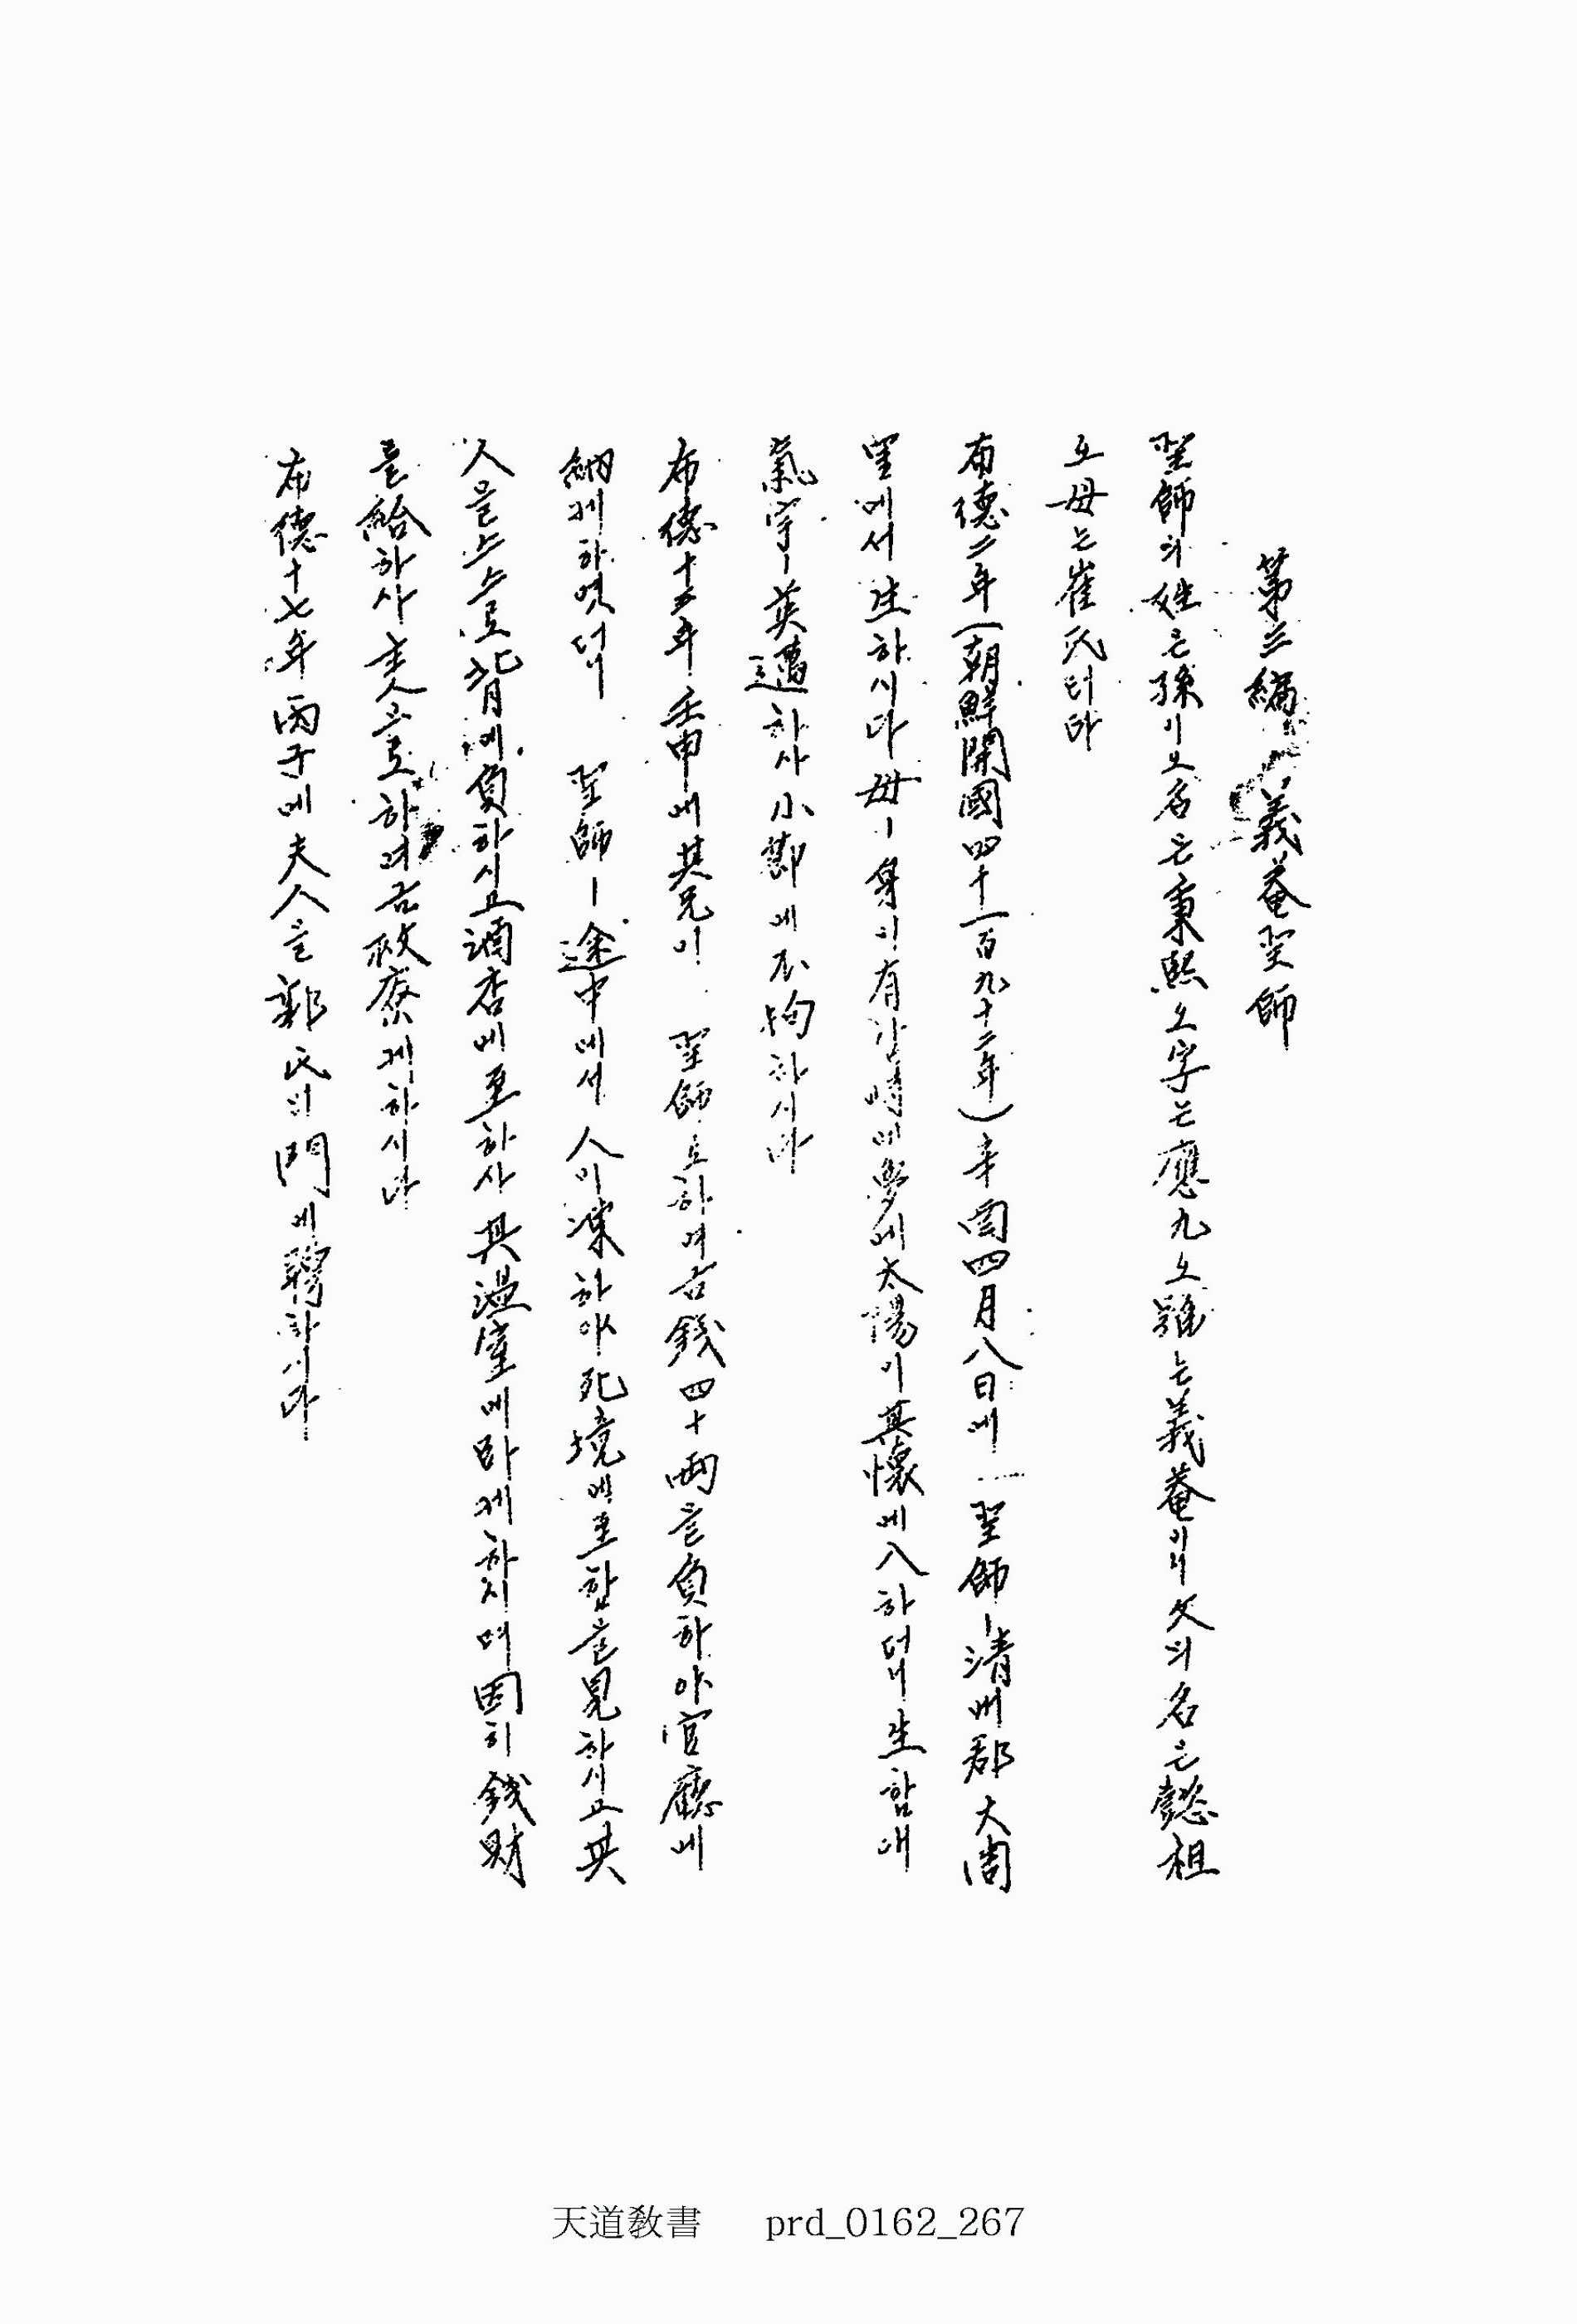 第三編 義菴聖師
聖師의姓은孫이오名은秉熙오字는應九오號는義菴이니父의名은懿祖
오母는崔氏러라
布德二年(朝鮮開國四千一百九十二年)辛酉四月八日에 聖師ㅣ淸州郡大周
里에서生하시다母ㅣ身이有간時에夢에太陽이其懷에入하더니生함애
氣宇ㅣ英邁하사小節에不拘하시다
布德十三年壬申에其兄이 聖師로하여금錢四十兩을負하야官廳에
納케하엿더니 聖師ㅣ途中에서人이凍하야死境에至함을見하시고其
人을스스로背에負하시고酒店에至하사其溫室에臥케하시며因히錢財
를給하사主人으로하여금救療케하시다
布德十七年丙子에夫人을郭氏의門에聘하시다
天道敎書 prd_0162_267